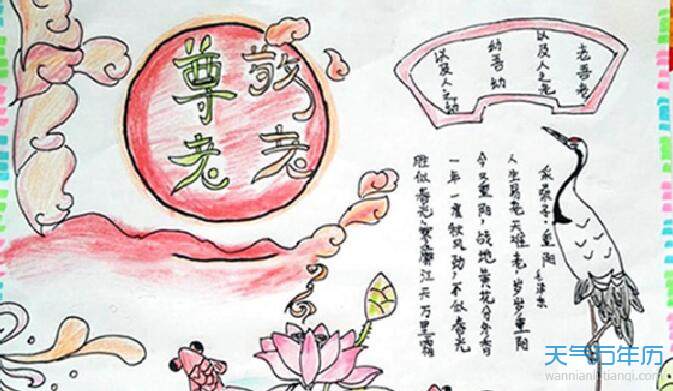 敬老
尊老
老吾老
以及人之老
幼吾幼
以及人之幼
采桑子·重阳
毛泽东
人生易老天难老,岁岁重阳
今又重阳,战地黄花分外香
一年一度秋风劲,不似春光
胜似春光,寥廓江天万里霜
天气万年历
wannianli.tianqi.com